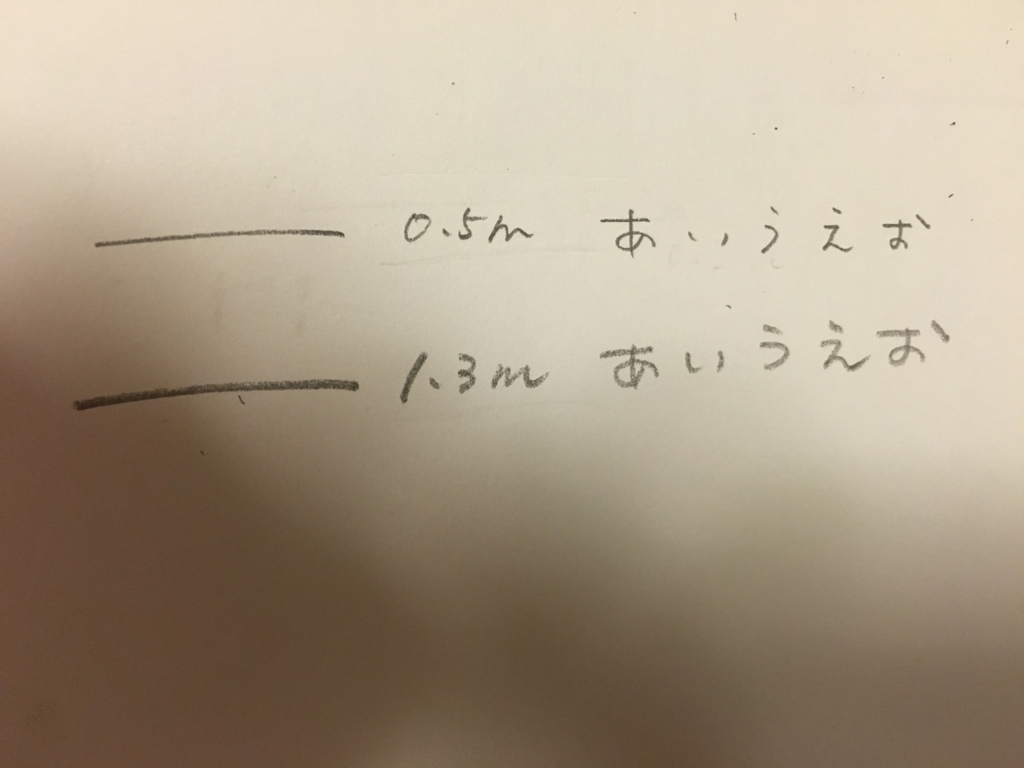 0.5m あいうえお
1.3m あいうえお